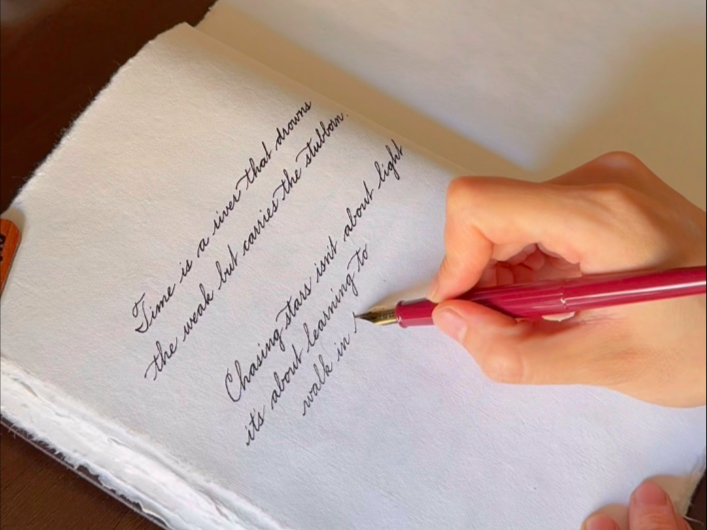 Time is a river that drowns
the weak but carries the stubborn.
Chasing stars isn't about light
it's about learning to
walk in